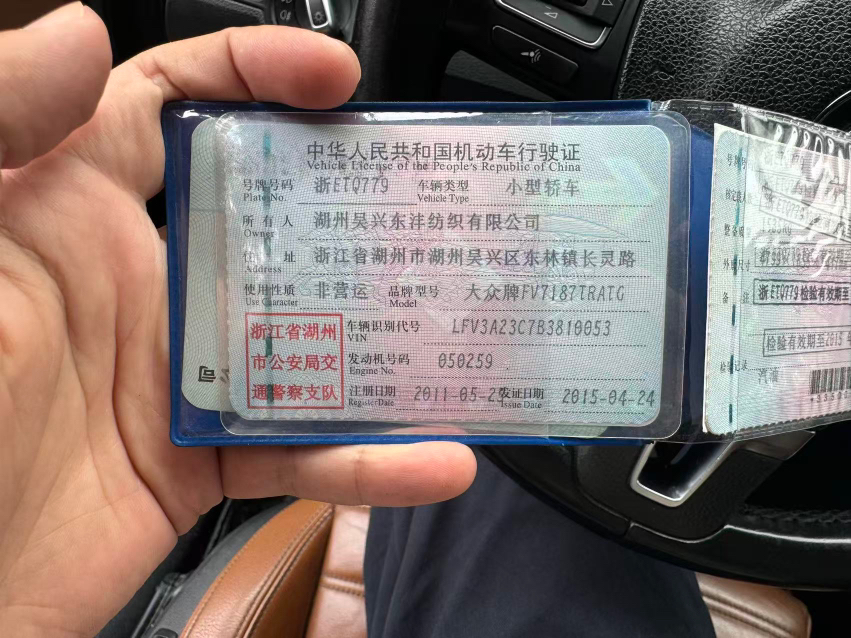 中华人民共和国机动车行驶证
Vehicle License of the People's Republic of China
号牌号码 浙ETQ779 车辆类型 小型轿车
Plate No. Vehicle Type
所有人 湖州吴兴东沣纺织有限公司
Owner
住址 浙江省湖州市湖州吴兴区东林镇长灵路
Address
使用性质 非营运 品牌型号 大众牌FV7187TRATG
Use Character Model
浙江省湖州 车辆识别代号 LFV3A23C7B3810053
VIN
市公安局交 发动机号码 050259
Engine No.
通警察支队 注册日期 2011-05-25 发证日期 2015-04-24
Register Date Issue Date
号牌号
核定载人
整备质
外廓尺寸
备 注
浙ETQ779检验有效期至
检验有效期至2015
检验记录
汽油